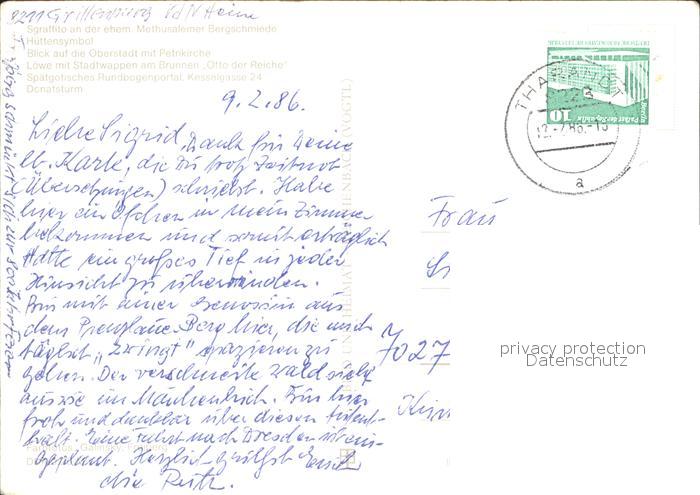 8211 Grillenburg VdN Heim
Sgraffito an der ehem. Methusalemer Bergschmiede
Hüttensymbol
Blick auf die Oberstadt mit Petrikirche
Löwe mit Stadtwappen am Brunnen „Otto der Reiche"
Spätgotisches Rundbogenportal, Kesselgasse 24
Donatsturm
9.2.86.
Liebe Sigrid, Dank für Deine
lb. Karte, die Du trotz Zeitnot
(Übersetzungen) schriebst. Habe
hier ein Öfchen in mein Zimmer
bekommen und somit erträglich
Hatte ein großes Tief in jeder
Hinsicht zu überwinden.
Bin mit einer Genossin aus
dem Prenzlauer Berg hier, die mich
täglich „zwingt" spazieren zu
gehen. Der verschneite Wald sieht
aus wie im Märchenbuch. Bin hier
froh und dankbar über diesen Aufent-
halt. Eine Fahrt nach Dresden ist ein-
geplant. Herzlich grüßt Euch
die Ruth.
THARANDT
8223
12.-2.86.-15
a
DEUTSCHE DEMOKRATISCHE REPUBLIK
Berlin
Palast der Republik
10
Frau
7027
privacy protection
Datenschutz